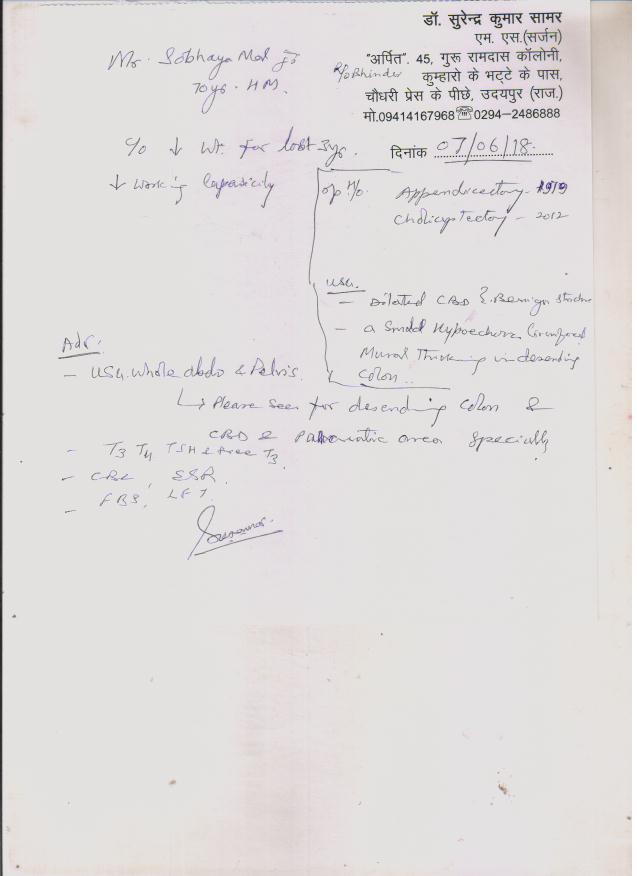 डॉ. सुरेन्द्र कुमार सामर
एम. एस.(सर्जन)
"अर्पित". 45, गुरू रामदास कॉलोनी,
कुम्हारो के भट्टे के पास,
चौधरी प्रेस के पीछे, उदयपुर (राज.)
मो.09414167968 ☏0294-2486888
दिनांक 07/06/18.
Mr. Sobhaya Mal
R/o Bhinder
70yr. HM.
c/o ↓ Wt. for last 3yr.
↓ Working Capasicity
op H/o. Appendicectomy - 1979
Cholicystectomy - 2012
USG.
- Dilated CBD Benign stricture
- a Small Hypoechoic
Mural Thickning in desending
Colon..
Adv:
- USG. Whole abdo & Pelvis.
↳ Please seen for desending Colon &
CBD & Pancreatic area specially
- T3 T4 TSH & free T3.
- CBC, ESR.
- FBS, LFT.